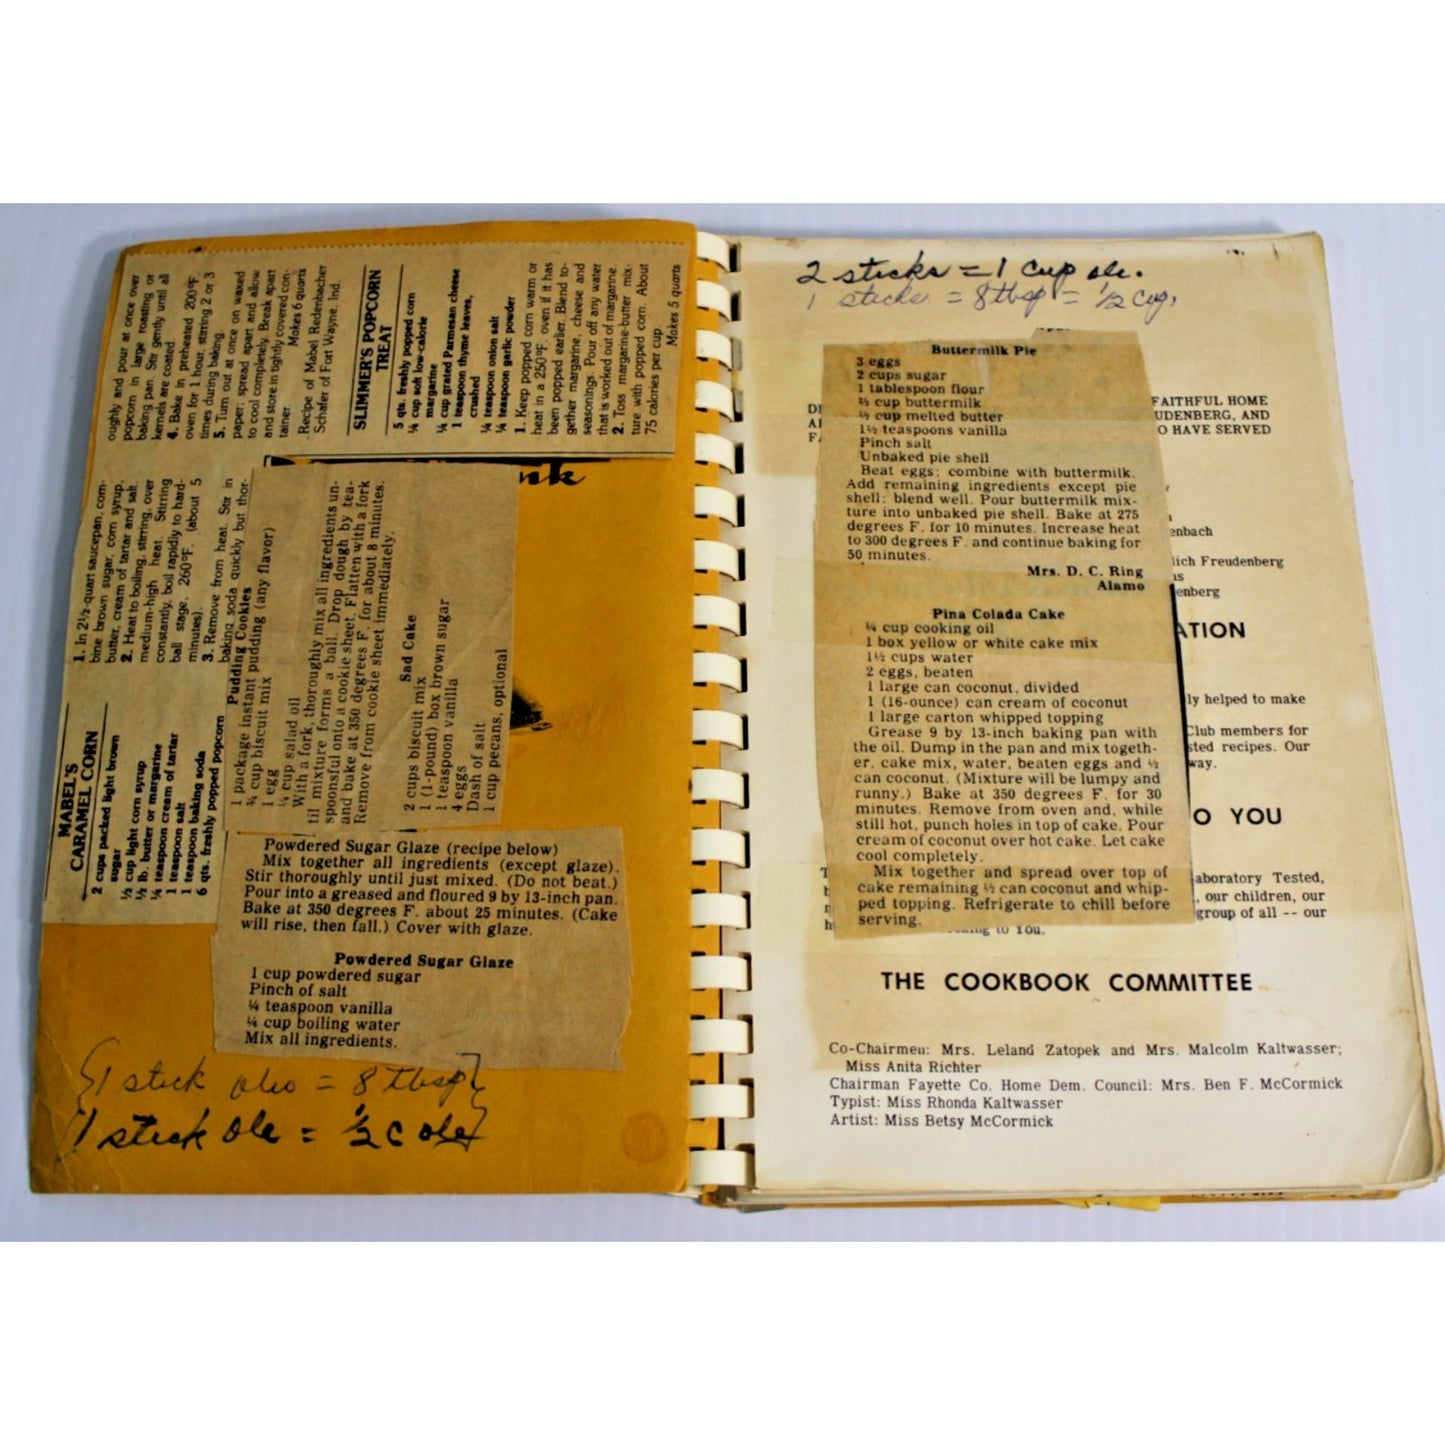 MABEL'S
CARAMEL CORN
2 cups packed light brown
sugar
½ cup light corn syrup
½ lb. butter or margarine
¼ teaspoon cream of tartar
1 teaspoon salt
1 teaspoon baking soda
6 qts. freshly popped popcorn
1. In 2½-quart saucepan, com-
bine brown sugar, corn syrup,
butter, cream of tartar and salt.
2. Heat to boiling, stirring, over
medium-high heat. Stirring
constantly, boil rapidly to hard-
ball stage, 260°F. (about 5
minutes).
3. Remove from heat. Stir in
baking soda quickly but thor-
oughly and pour at once over
popcorn in large roasting or
baking pan. Stir gently until all
kernels are coated.
4. Bake in preheated 200°F.
oven for 1 hour, stirring 2 or 3
times during baking.
5. Turn out at once on waxed
paper; spread apart and allow
to cool completely. Break apart
and store in tightly covered con-
tainer.
Makes 6 quarts
Recipe of Mabel Redenbacher
Schafer of Fort Wayne, Ind.
SLIMMER'S POPCORN
TREAT
5 qts. freshly popped corn
¼ cup soft low-calorie
margarine
¼ cup grated Parmesan cheese
1 teaspoon thyme leaves,
crushed
¼ teaspoon onion salt
¼ teaspoon garlic powder
1. Keep popped corn warm or
heat in a 250°F. oven if it has
been popped earlier. Blend to-
gether margarine, cheese and
seasonings. Pour off any water
that is worked out of margarine.
2. Toss margarine-butter mix-
ture with popped corn. About
75 calories per cup.
Makes 5 quarts
Pudding Cookies
1 package instant pudding (any flavor)
¾ cup biscuit mix
1 egg
¼ cup salad oil
With a fork, thoroughly mix all ingredients un-
til mixture forms a ball. Drop dough by tea-
spoonsful onto a cookie sheet. Flatten with a fork
and bake at 350 degrees F. for about 8 minutes.
Remove from cookie sheet immediately.
Sad Cake
2 cups biscuit mix
1 (1-pound) box brown sugar
1 teaspoon vanilla
4 eggs
Dash of salt
1 cup pecans, optional
Powdered Sugar Glaze (recipe below)
Mix together all ingredients (except glaze).
Stir thoroughly until just mixed. (Do not beat.)
Pour into a greased and floured 9 by 13-inch pan.
Bake at 350 degrees F. about 25 minutes. (Cake
will rise, then fall.) Cover with glaze.
Powdered Sugar Glaze
1 cup powdered sugar
Pinch of salt
¼ teaspoon vanilla
¼ cup boiling water
Mix all ingredients.
1 stick oleo = 8 tbsp
1 stick ole = ½ c ole
2 sticks = 1 cup ole.
1 sticks = 8 tbsp = ½ cup,
Buttermilk Pie
3 eggs
2 cups sugar
1 tablespoon flour
⅔ cup buttermilk
½ cup melted butter
1½ teaspoons vanilla
Pinch salt
Unbaked pie shell
Beat eggs; combine with buttermilk.
Add remaining ingredients except pie
shell; blend well. Pour buttermilk mix-
ture into unbaked pie shell. Bake at 275
degrees F. for 10 minutes. Increase heat
to 300 degrees F. and continue baking for
50 minutes.
Mrs. D. C. Ring
Alamo
Pina Colada Cake
¼ cup cooking oil
1 box yellow or white cake mix
1½ cups water
2 eggs, beaten
1 large can coconut, divided
1 (16-ounce) can cream of coconut
1 large carton whipped topping
Grease 9 by 13-inch baking pan with
the oil. Dump in the pan and mix togeth-
er, cake mix, water, beaten eggs and ½
can coconut. (Mixture will be lumpy and
runny.) Bake at 350 degrees F. for 30
minutes. Remove from oven and, while
still hot, punch holes in top of cake. Pour
cream of coconut over hot cake. Let cake
cool completely.
Mix together and spread over top of
cake remaining ½ can coconut and whip-
ped topping. Refrigerate to chill before
serving.
FAITHFUL HOME
UDENBERG, AND
O HAVE SERVED
enbach
lich Freudenberg
ns
enberg
ATION
ly helped to make
Club members for
sted recipes. Our
way.
O YOU
aboratory Tested,
, our children, our
group of all -- our
to You.
THE COOKBOOK COMMITTEE
Co-Chairmen: Mrs. Leland Zatopek and Mrs. Malcolm Kaltwasser;
Miss Anita Richter
Chairman Fayette Co. Home Dem. Council: Mrs. Ben F. McCormick
Typist: Miss Rhonda Kaltwasser
Artist: Miss Betsy McCormick